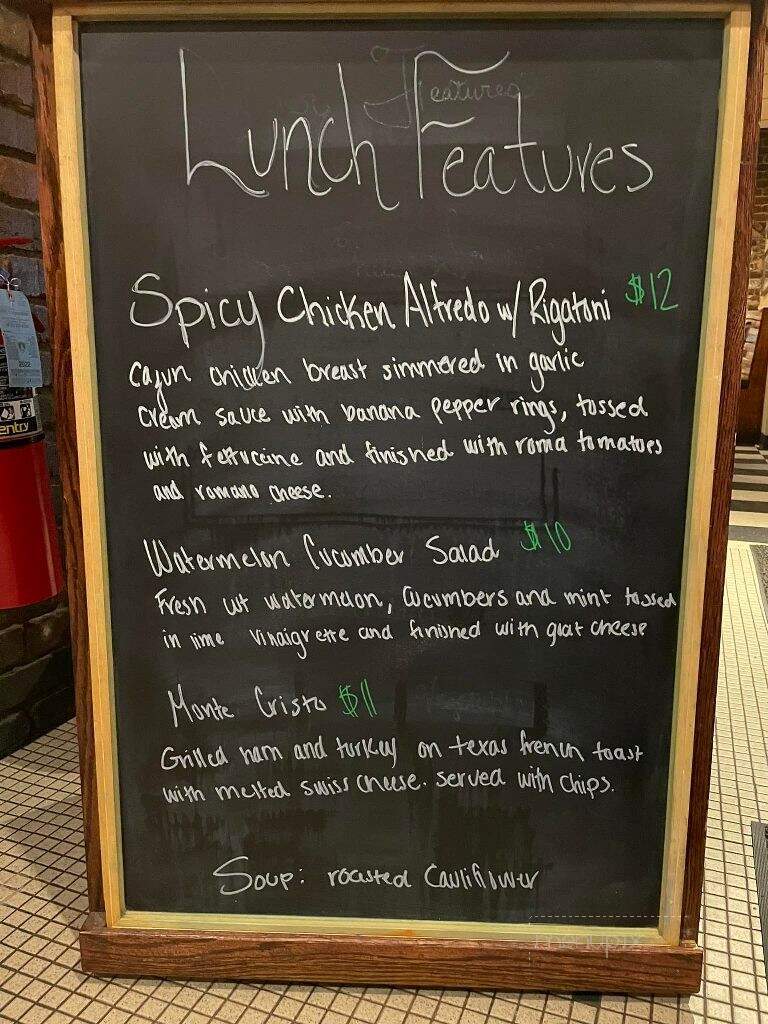 Features
Lunch Features
Spicy Chicken Alfredo w/ Rigatoni $12
Cajun chicken breast simmered in garlic
cream sauce with banana pepper rings, tossed
with fettuccine and finished with roma tomatoes
and romano cheese.
Watermelon Cucumber Salad $10
Fresh cut watermelon, Cucumbers and mint tossed
in lime vinaigrette and finished with goat cheese
Monte Cristo $11
Grilled ham and turkey on texas french toast
with melted swiss cheese. served with chips.
Soup: roasted Cauliflower
2022
entry
menupix